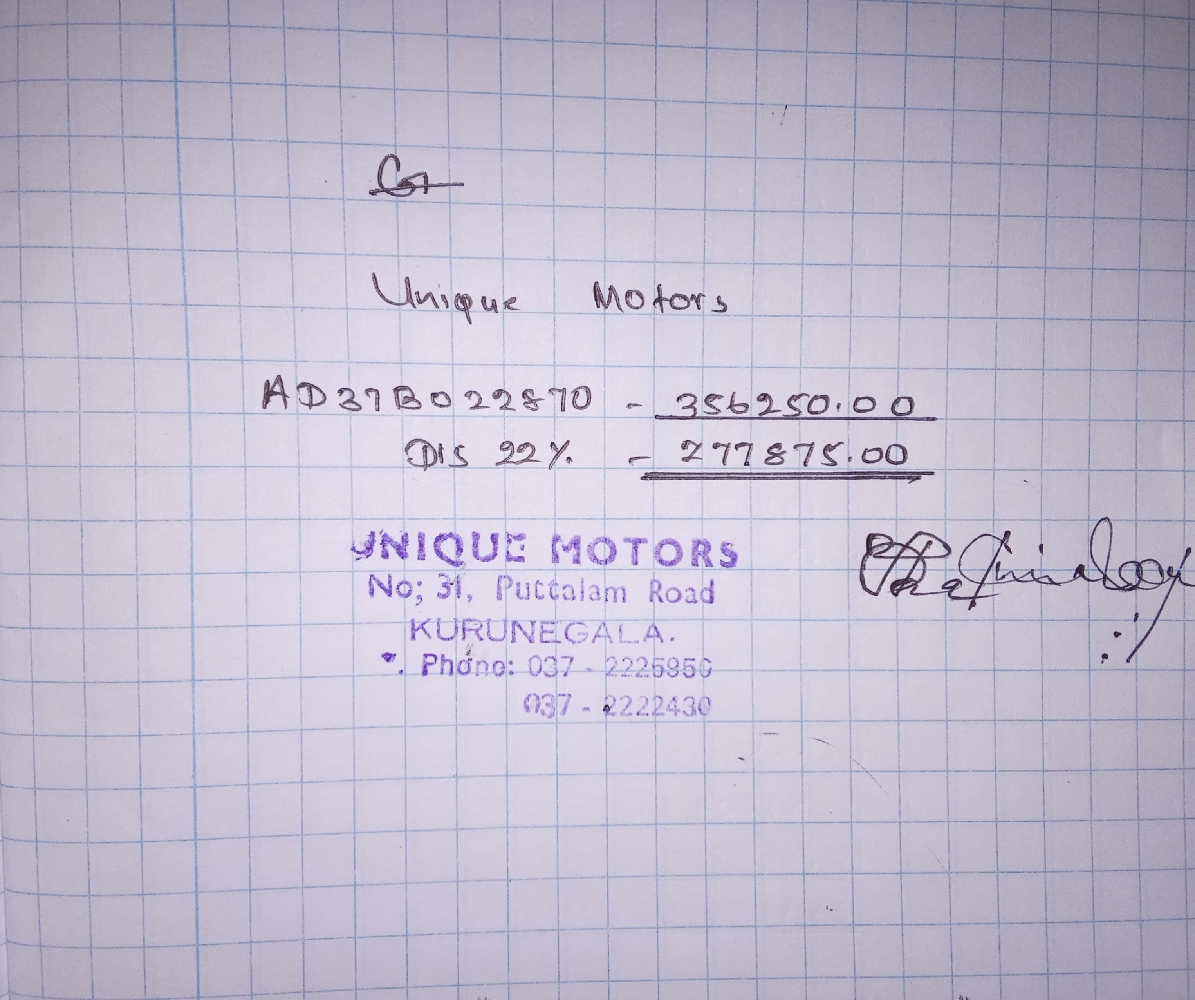 Unique Motors
AD37B022870 - 356250.00
Dis 22% - 277875.00
UNIQUE MOTORS
No; 31, Puttalam Road
KURUNEGALA.
Phone: 037 - 2225950
037 - 2222430